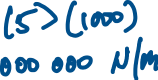 (5)(1000)
000 000 N/m